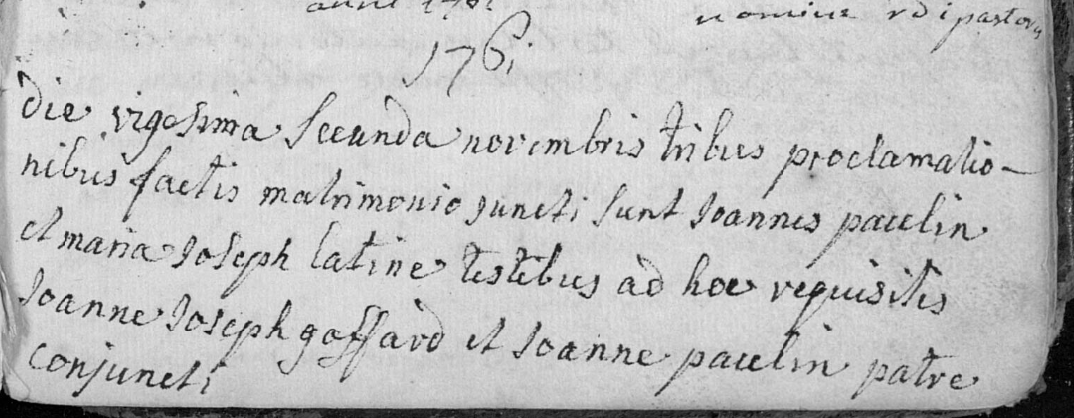 anni 1761
nomine rdi pastoris
1761
die vigesima secunda novembris tribus proclamatio-
nibus factis matrimonio juncti sunt Joannes paulin
et maria Joseph latine testibus ad hoc requisitis
Joanne Joseph goffard et Joanne paulin patre
conjuncti